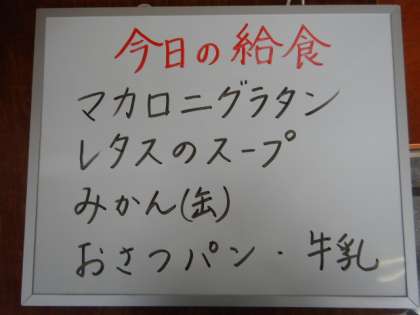 今日の給食
マカロニグラタン
レタスのスープ
みかん(缶)
おさつパン・牛乳